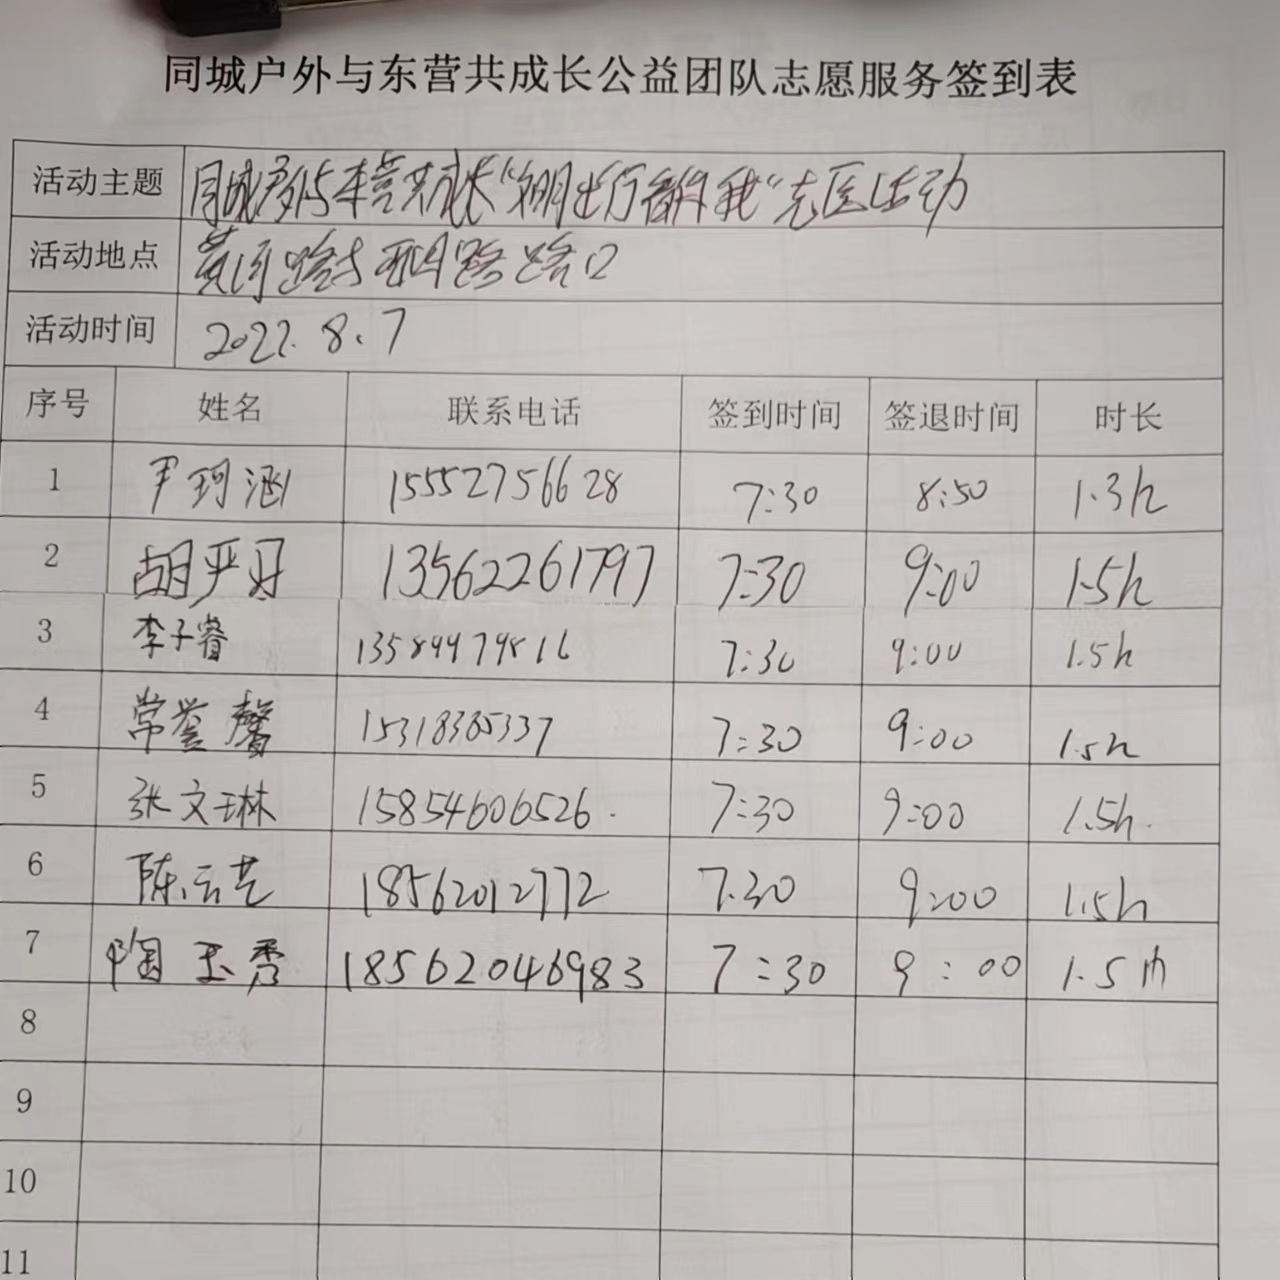 同城户外与东营共成长公益团队志愿服务签到表
活动主题 同城户外与东营共成长“文明出行 我”志愿活动
活动地点 黄河路与 路路口
活动时间 2022.8.7
序号 姓名 联系电话 签到时间 签退时间 时长
1 尹珂涵 15552756628 7:30 8:50 1.3h
2 胡严丹 13562261797 7:30 9:00 1.5h
3 李子睿 13589979816 7:30 9:00 1.5h
4 常誉馨 15318385337 7:30 9:00 1.5h
5 张文琳 15854606526. 7:30 9:00 1.5h.
6 陈云艺 18562012772 7.30 9:00 1.5h
7 陶玉秀 18562046983 7:30 9:00 1.5h
8
9
10
11